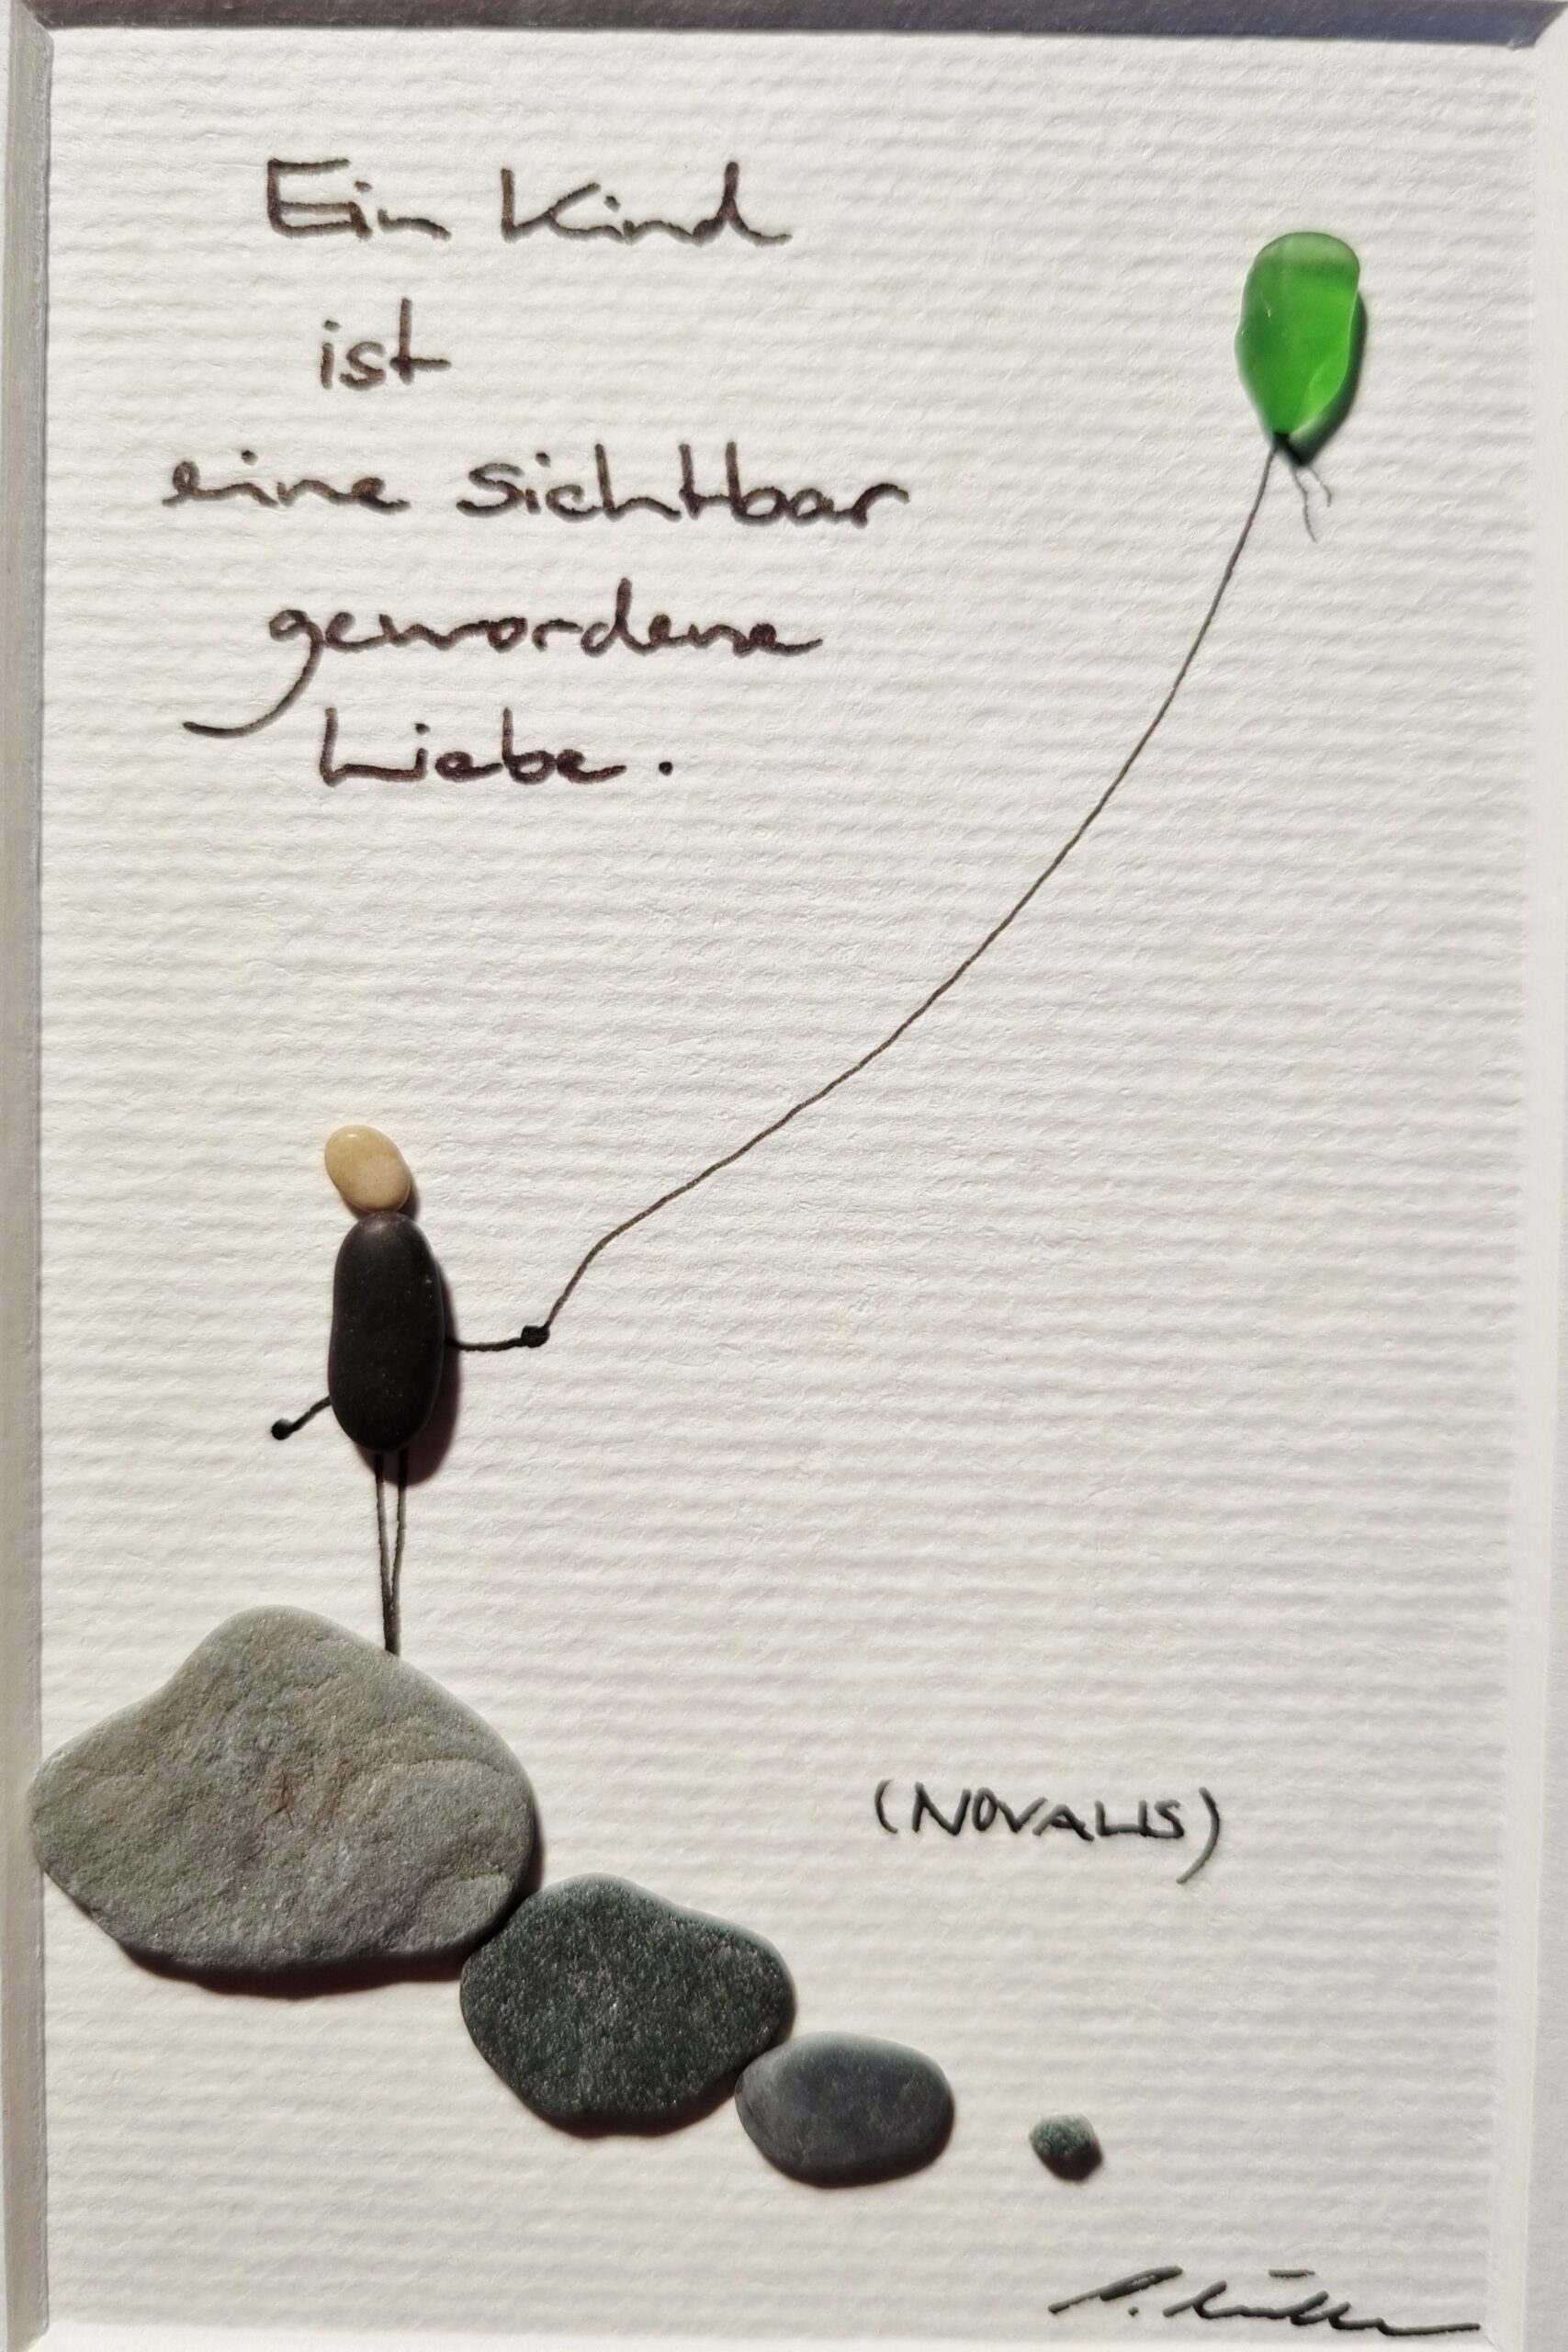 Ein Kind
ist
eine sichtbar
gewordene
Liebe.
(NOVALIS)